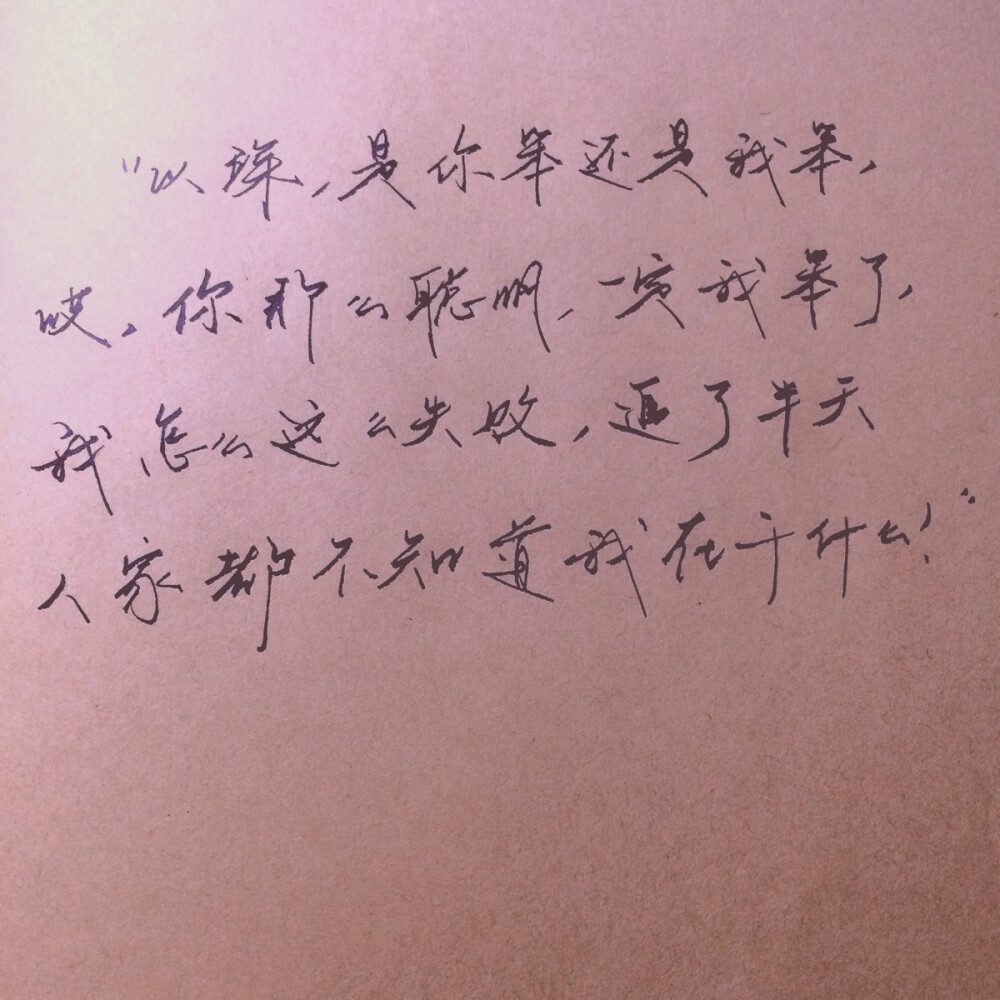 “以琛，是你笨还是我笨，
哎，你那么聪明，一定我笨了，
我怎么这么失败，追了半天
人家都不知道我在干什么！”